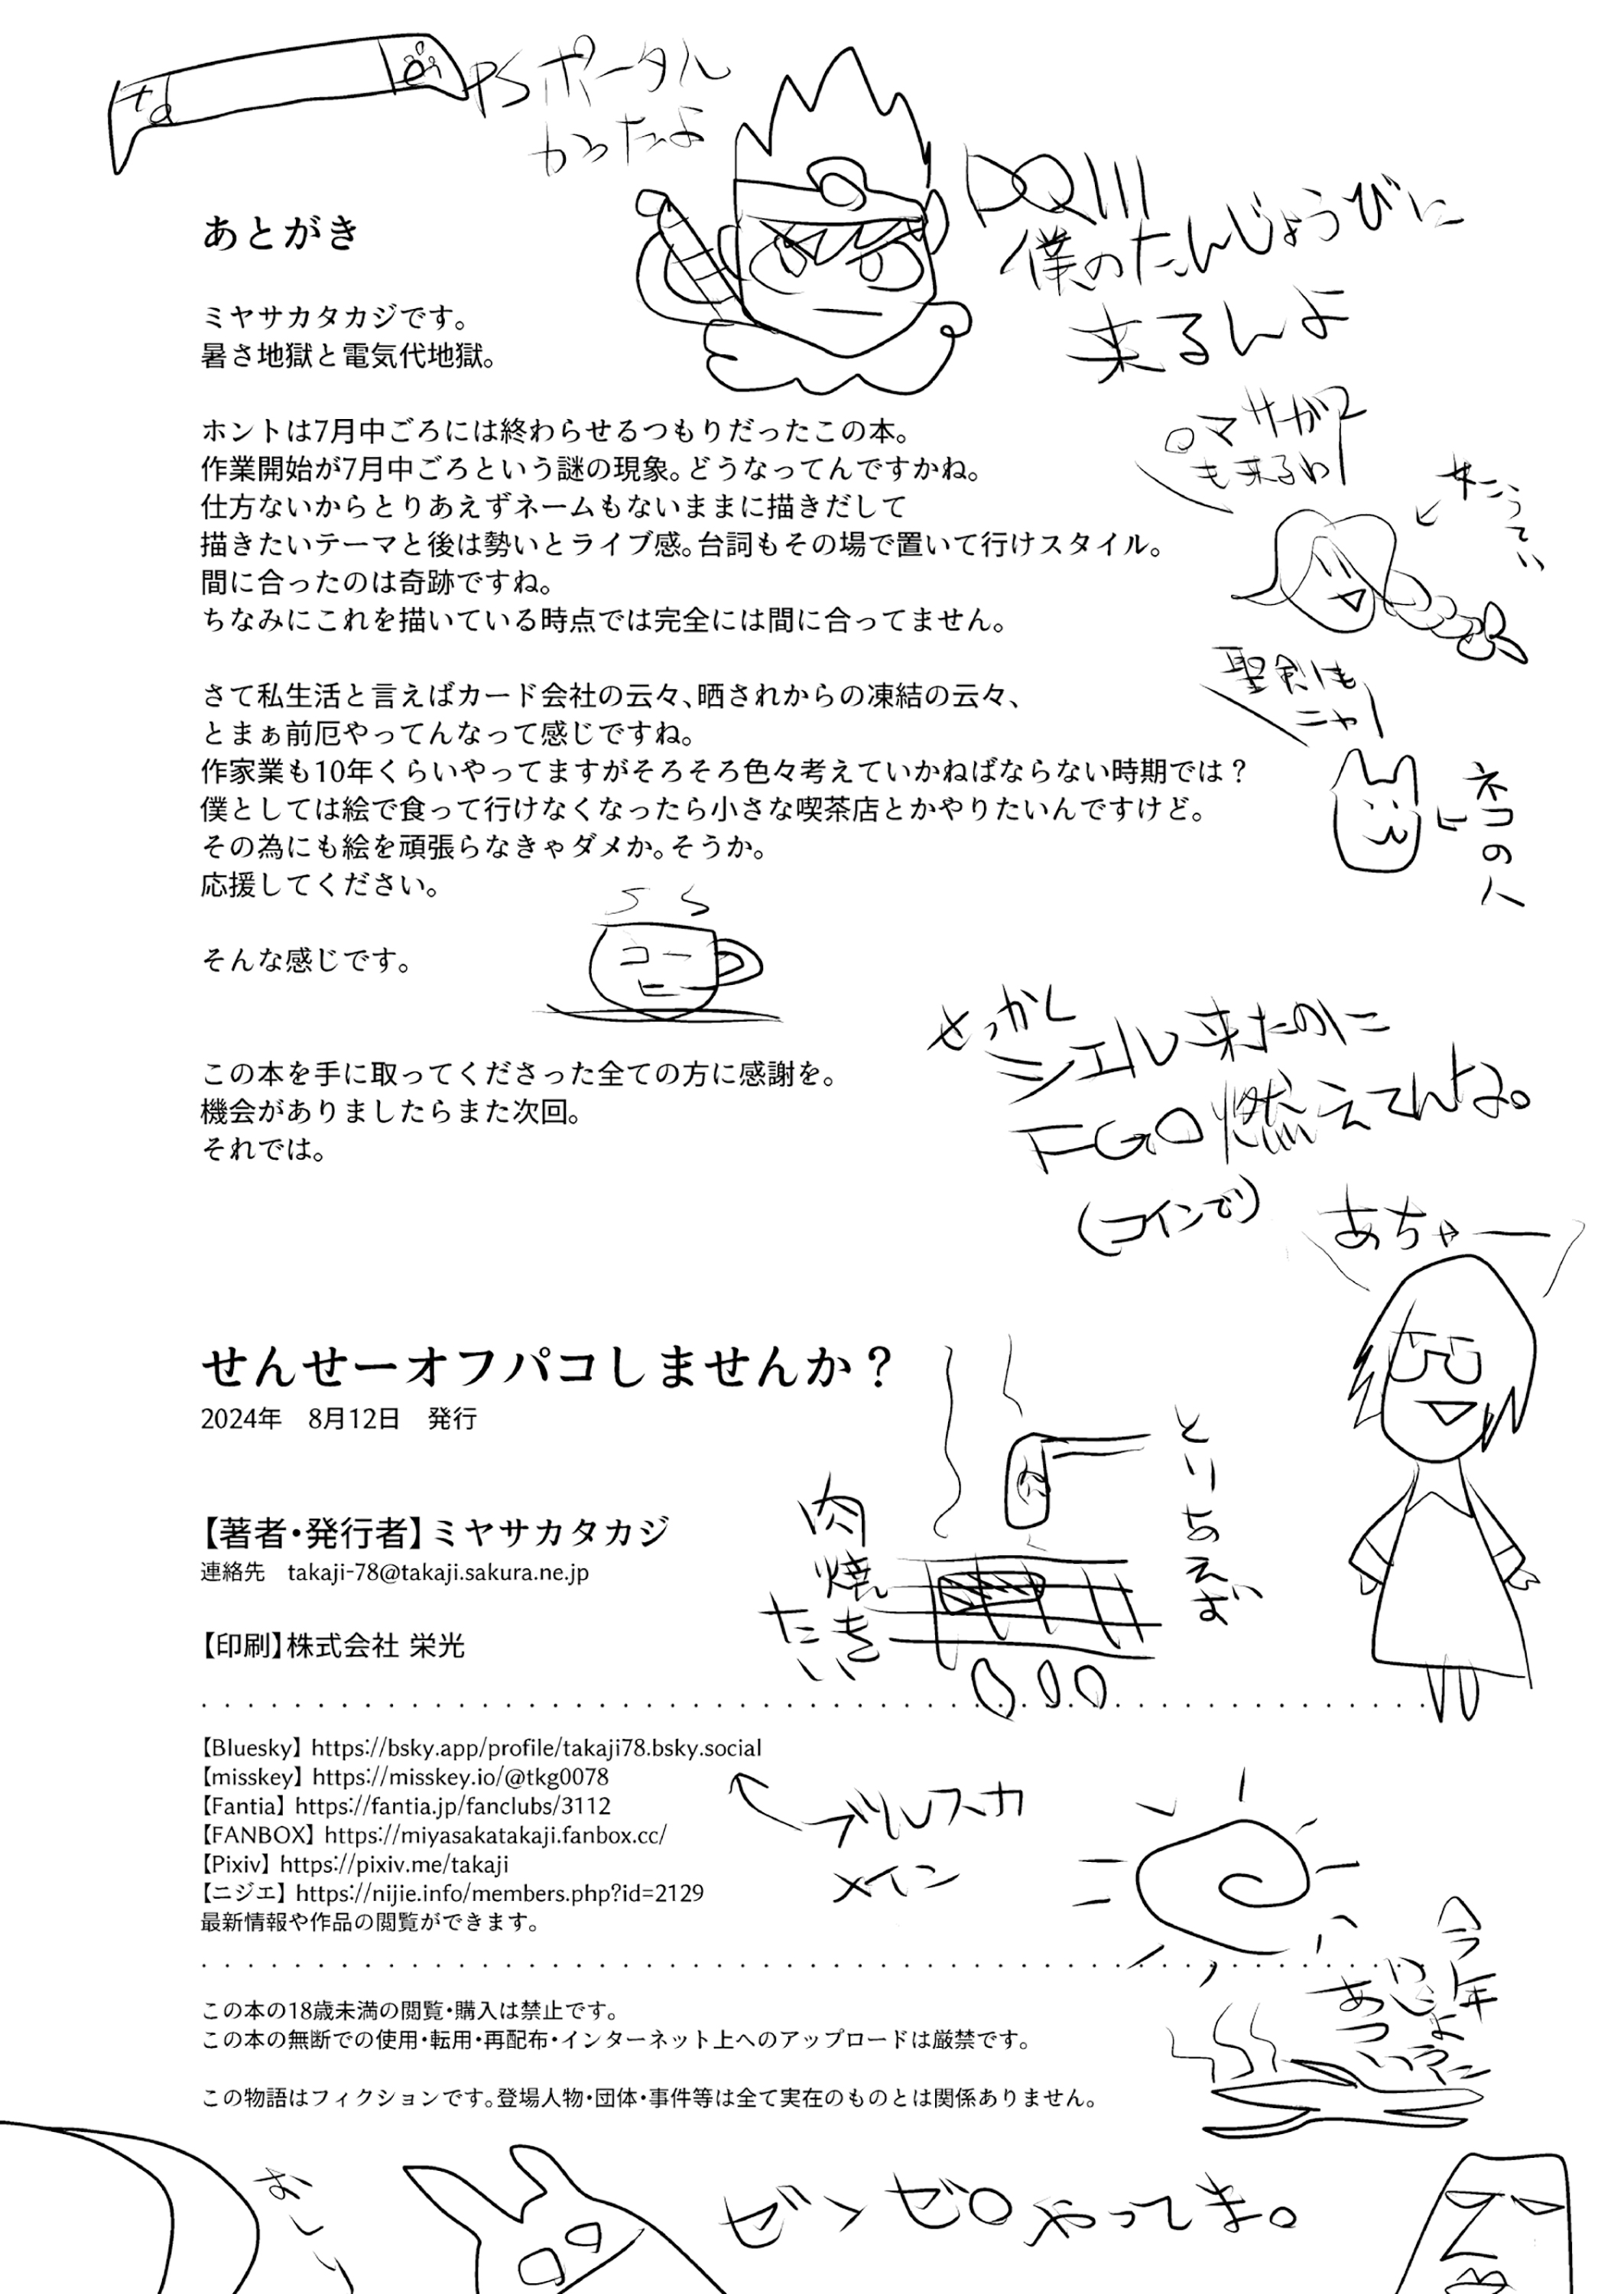 PSポータル
かったよ
DQIII
僕のたんじょうびに
来るんよ
あとがき
ミヤサカタカジです。
暑さ地獄と電気代地獄。
ロマサガ2
も来るわ
ホントは7月中ごろには終わらせるつもりだったこの本。
作業開始が7月中ごろという謎の現象。どうなってんですかね。
仕方ないからとりあえずネームもないままに描きだして
描きたいテーマと後は勢いとライブ感。台詞もその場で置いて行けスタイル。
間に合ったのは奇跡ですね。
ちなみにこれを描いている時点では完全には間に合ってません。
女こうてい
聖剣も
ニャ
さて私生活と言えばカード会社の云々、晒されからの凍結の云々、
とまぁ前厄やってんなって感じですね。
作家業も10年くらいやってますがそろそろ色々考えていかねばならない時期では？
僕としては絵で食って行けなくなったら小さな喫茶店とかやりたいんですけど。
その為にも絵を頑張らなきゃダメか。そうか。
応援してください。
ネコの人
そんな感じです。
コー
ヒー
この本を手に取ってくださった全ての方に感謝を。
機会がありましたらまた次回。
それでは。
せっかく
シエル来たのに
FGO燃えてんよ。
(コインで)
あちゃー
せんせーオフパコしませんか？
2024年　8月12日　発行
とりあえず
肉焼きたい
【著者・発行者】ミヤサカタカジ
連絡先　takaji-78@takaji.sakura.ne.jp
【印刷】株式会社 栄光
【Bluesky】https://bsky.app/profile/takaji78.bsky.social
【misskey】https://misskey.io/@tkg0078
【Fantia】https://fantia.jp/fanclubs/3112
【FANBOX】https://miyasakatakaji.fanbox.cc/
【Pixiv】https://pixiv.me/takaji
【ニジエ】https://nijie.info/members.php?id=2129
最新情報や作品の閲覧ができます。
ブルスカ
メイン
今年
いじょうに
あつい
この本の18歳未満の閲覧・購入は禁止です。
この本の無断での使用・転用・再配布・インターネット上へのアップロードは厳禁です。
この物語はフィクションです。登場人物・団体・事件等は全て実在のものとは関係ありません。
おしり
ゼンゼロやってま。